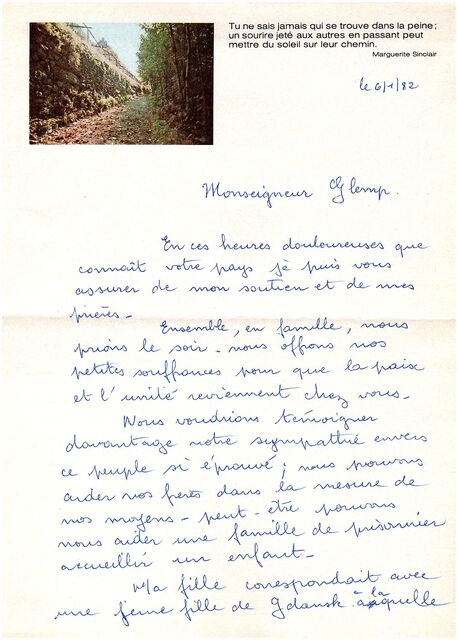 Tu ne sais jamais qui se trouve dans la peine;
un sourire jeté aux autres en passant peut
mettre du soleil sur leur chemin.
Marguerite Sinclair
le 6/1/82
Monseigneur Glemp.
En ces heures douloureuses que
connaît votre pays je puis vous
assurer de mon soutien et de mes
prières -
Ensemble, en famille, nous
prions le soir - nous offrons nos
petites souffrances pour que la paix
et l'unité reviennent chez vous -
Nous voudrions témoigner
davantage notre sympathie envers
ce peuple si éprouvé; nous pouvons
aider nos frères dans la mesure de
nos moyens - peut-être pouvons
nous aider une famille de prisonnier
accueillir un enfant -
Ma fille correspondait avec
une jeune fille de Gdansk à laquelle